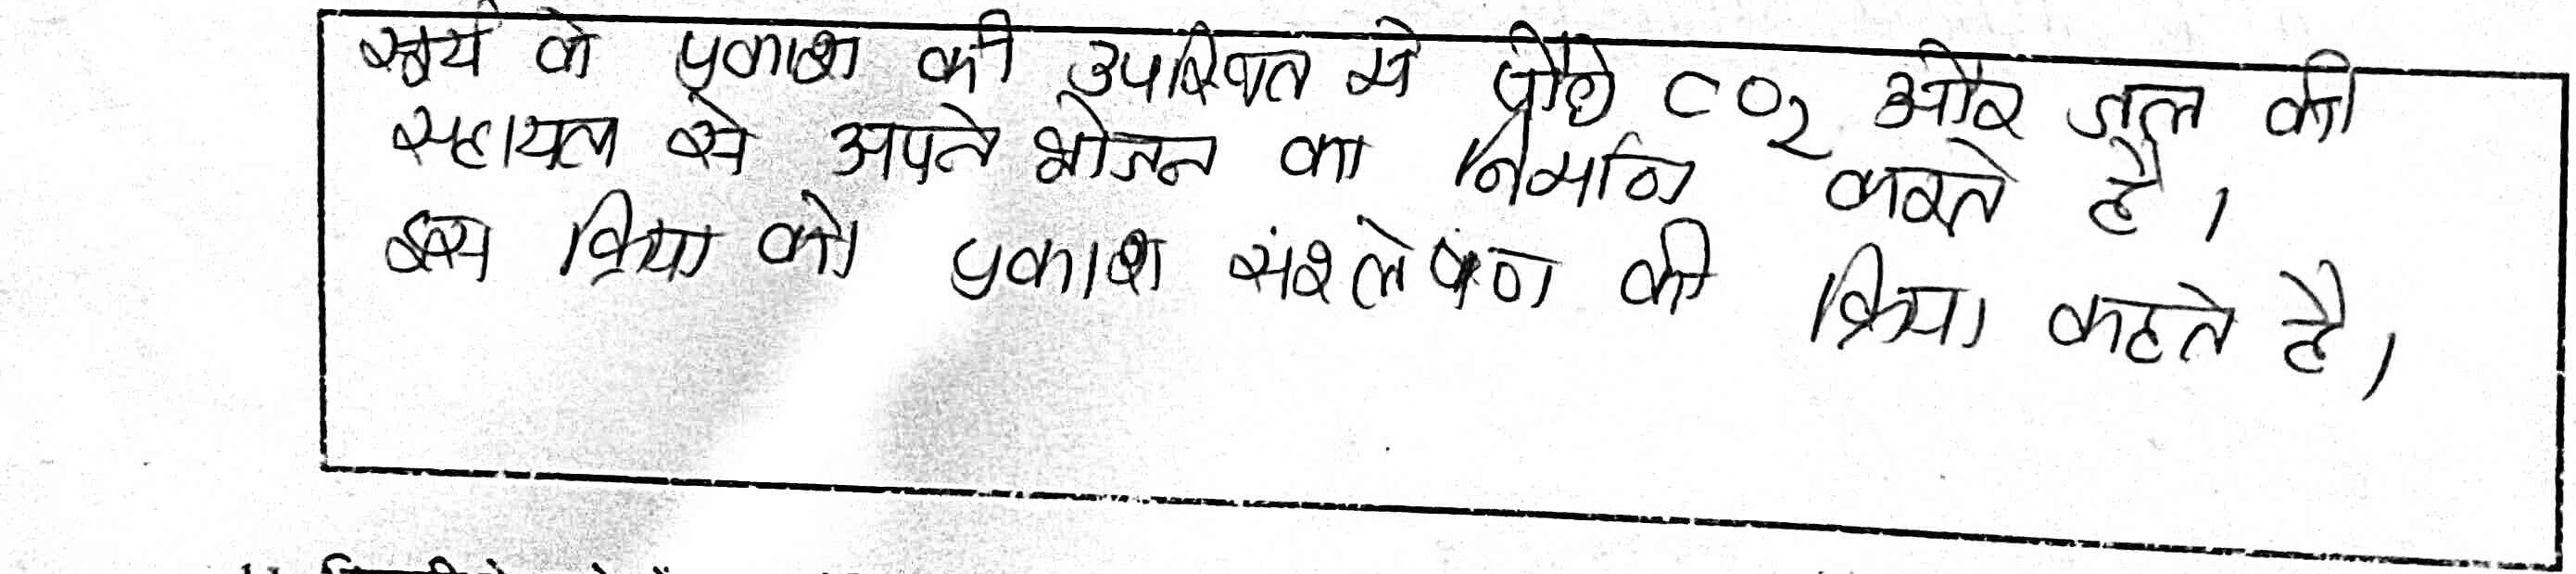 सूर्य के प्रकाश की उपस्थित मे पौधे CO₂ और जल की
सहायता से अपने भोजन का निर्माण करते है।
इस क्रिया को प्रकाश संश्लेषण की क्रिया कहते है।